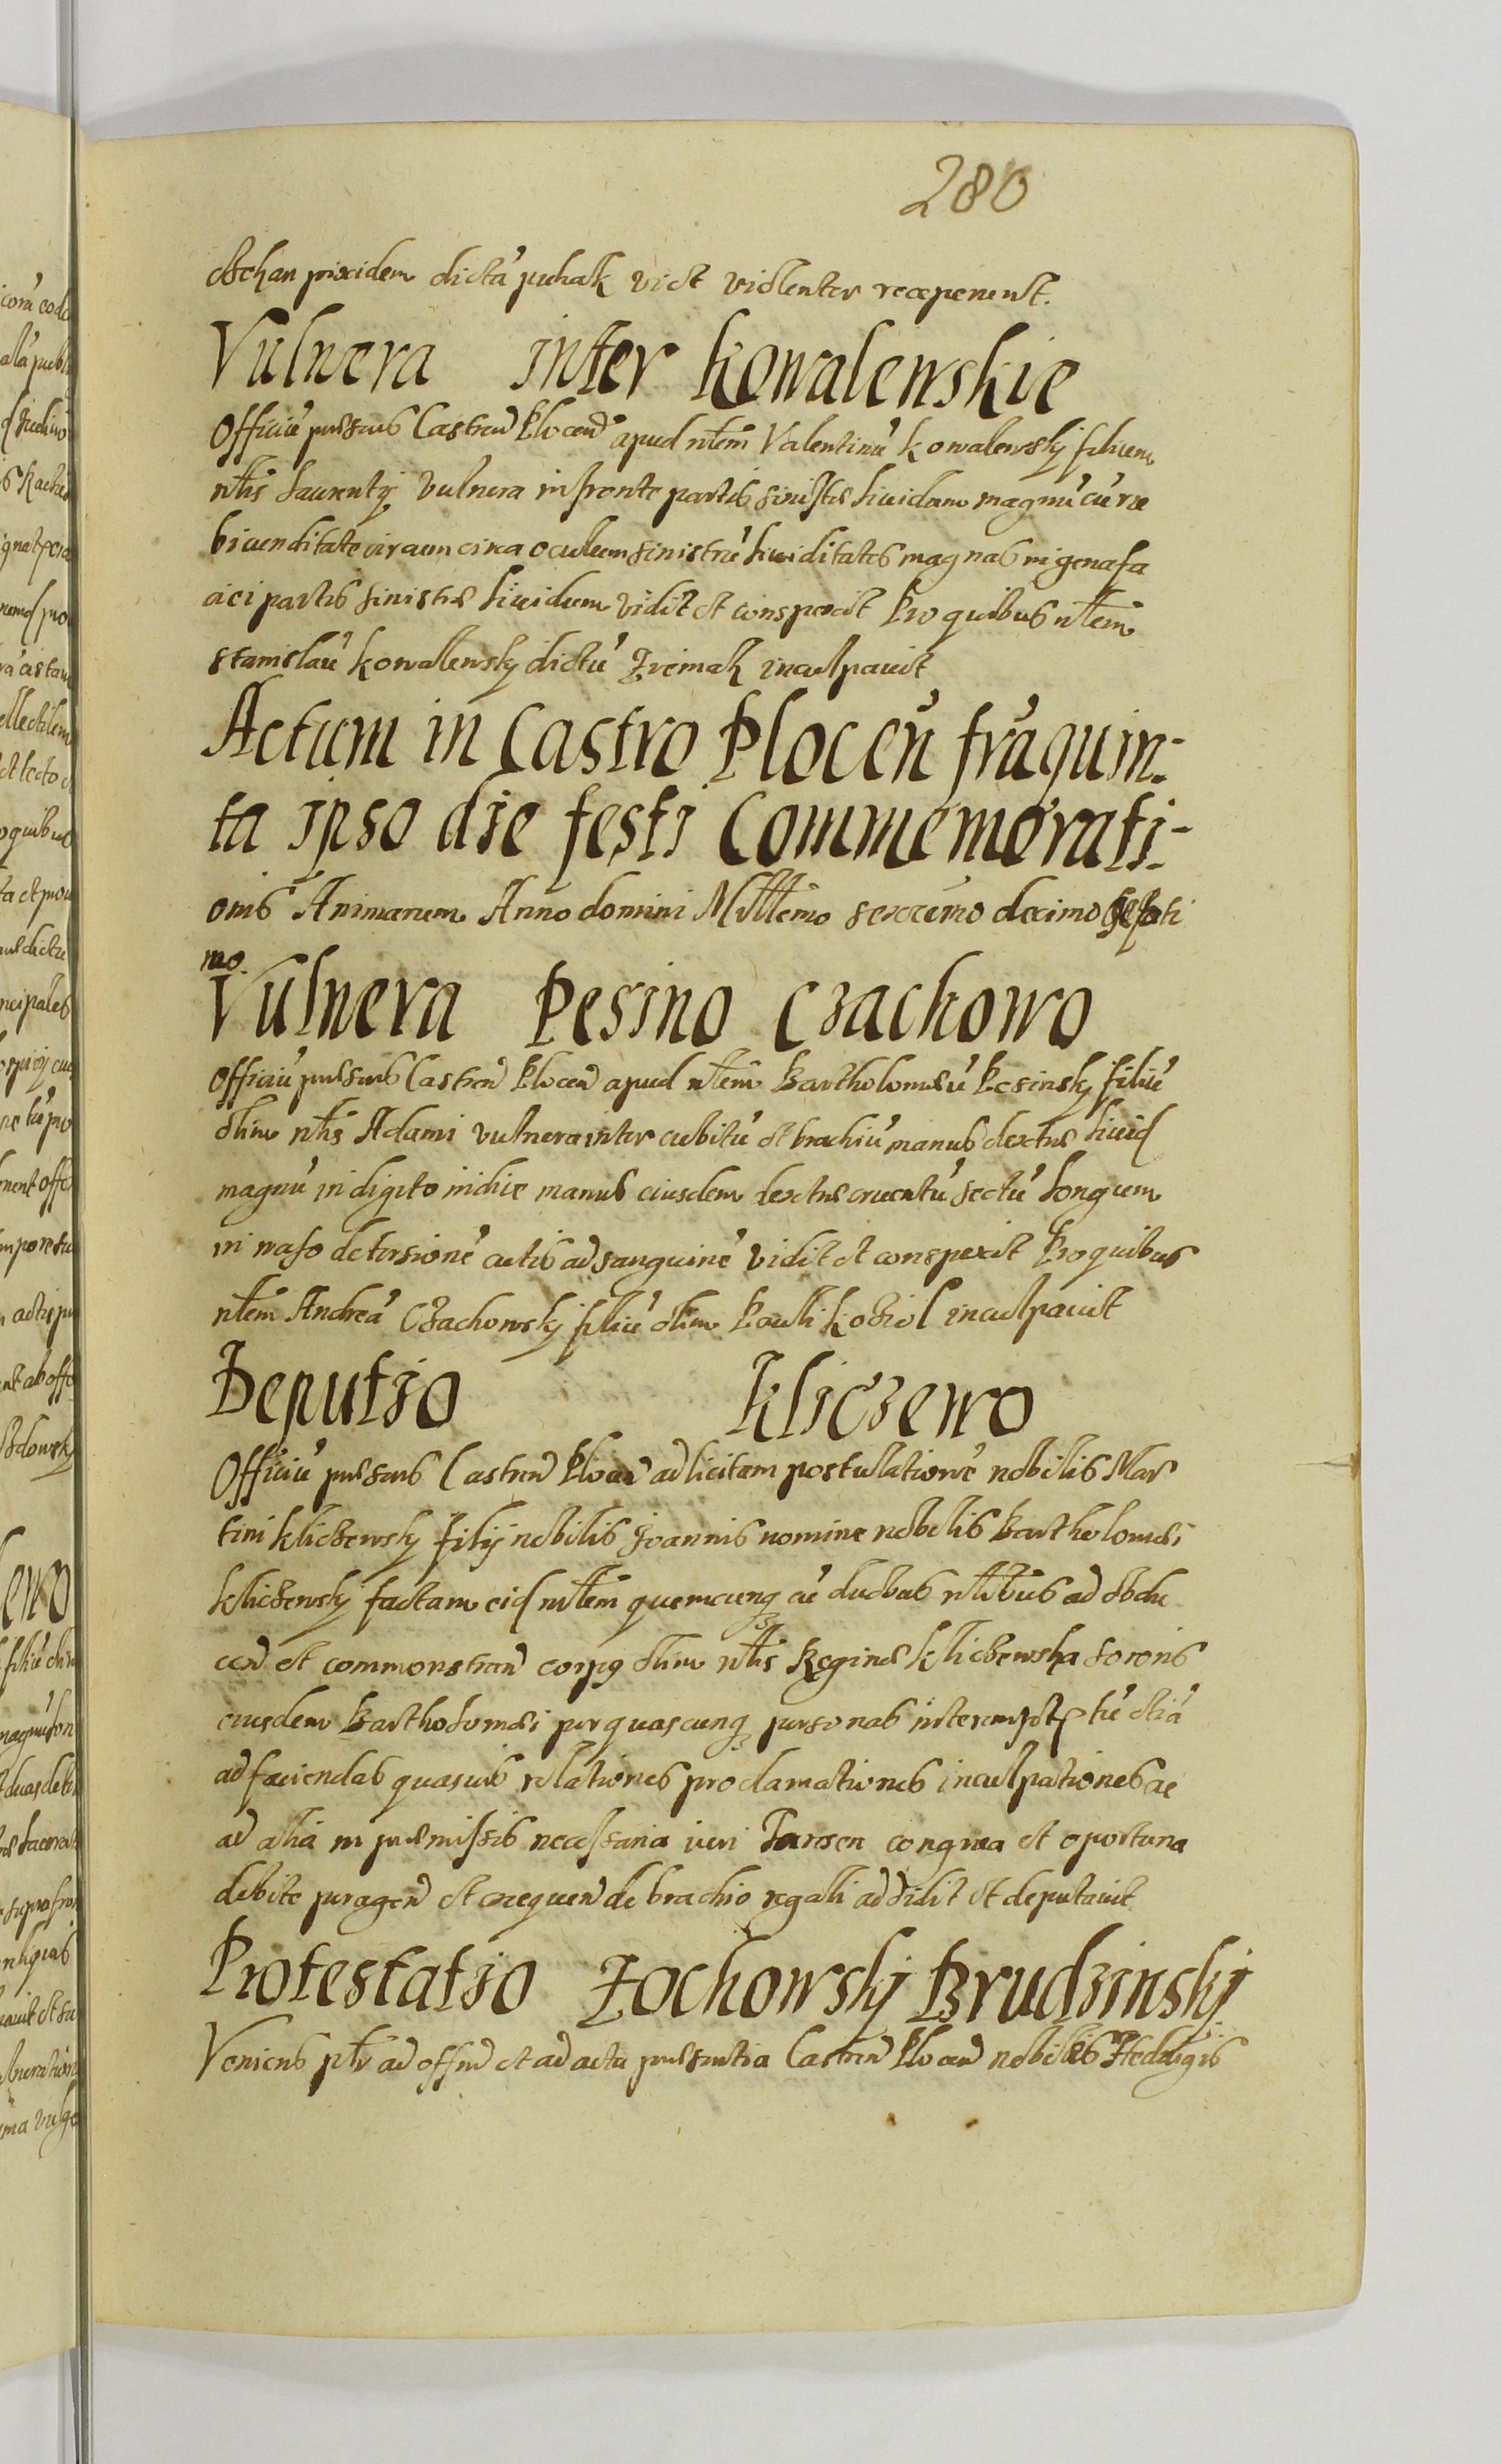 280
pixidem dictã puhak vict violenter receperunt.
Vulnera inter Kowalewskie
Officiũ præsens Castren Plocen apud nblem Valentinũ Kowalewskj filium
nblis Laurentij vulnera in fronte partis sinistræ liuidum magnũ cũ ru
bicunditate circum circa oculum sinistrũ liuiditates magnas in gena fa
ciei partis sinistræ liuidum vidit et conspexit Pro quibus nblem
Stanislaũ Kowallewskj dictũ inculpauit
Actum in Castro Plocen̄ fr̃a quin-
ta ipso die festi Commemorati-
onis Animarum Anno domini Milllemo sexcẽmo decimo septi
mo.
Vulnera Pesino Czachowo
Officiũ præsens Castren Plocen apud nblem Bartholomæũ Pesinskj filiũ
olim nblis Adami vulnera inter cubitũ et brachiũ manus dextræ liuid
magnũ in digito indice manus eiusdem dextræ cruentũ sectũ longum
in naso detersionẽ cutis ad sanguinẽ vidit et conspexit Pro quibus
nblem Andreã Czachowskj filiũ olim Paulli Koziol inculpauit
Deputio Kliczewo
Officiũ præsens Castren Plocen ad licitam postulationẽ nobilis Mar
tini Kliczewskj filij nobilis Joannis nomine nobilis Bartholomæi
Kliczewskj factam eid mlem quemcunq cũ duobus nblibus ad obdu
cen et commonstran corpus olim nblis Reginæ Kliczewska sororis
eiusdem Bartholomæi per quascunq personas interempt tũ etiã
ad faciendas quasuis relationes proclamationes inculpationes ac
ad alia in præmissis necessaria iuri Tarsen congrua et oportuna
debite peragen et exequen de brachio regalli addidit et deputauit
Protestatio Zochowskj Brudzinskj
Veniens ptr ad offm et ad acta præsentia Castren Plocen nobilis Hedwigis